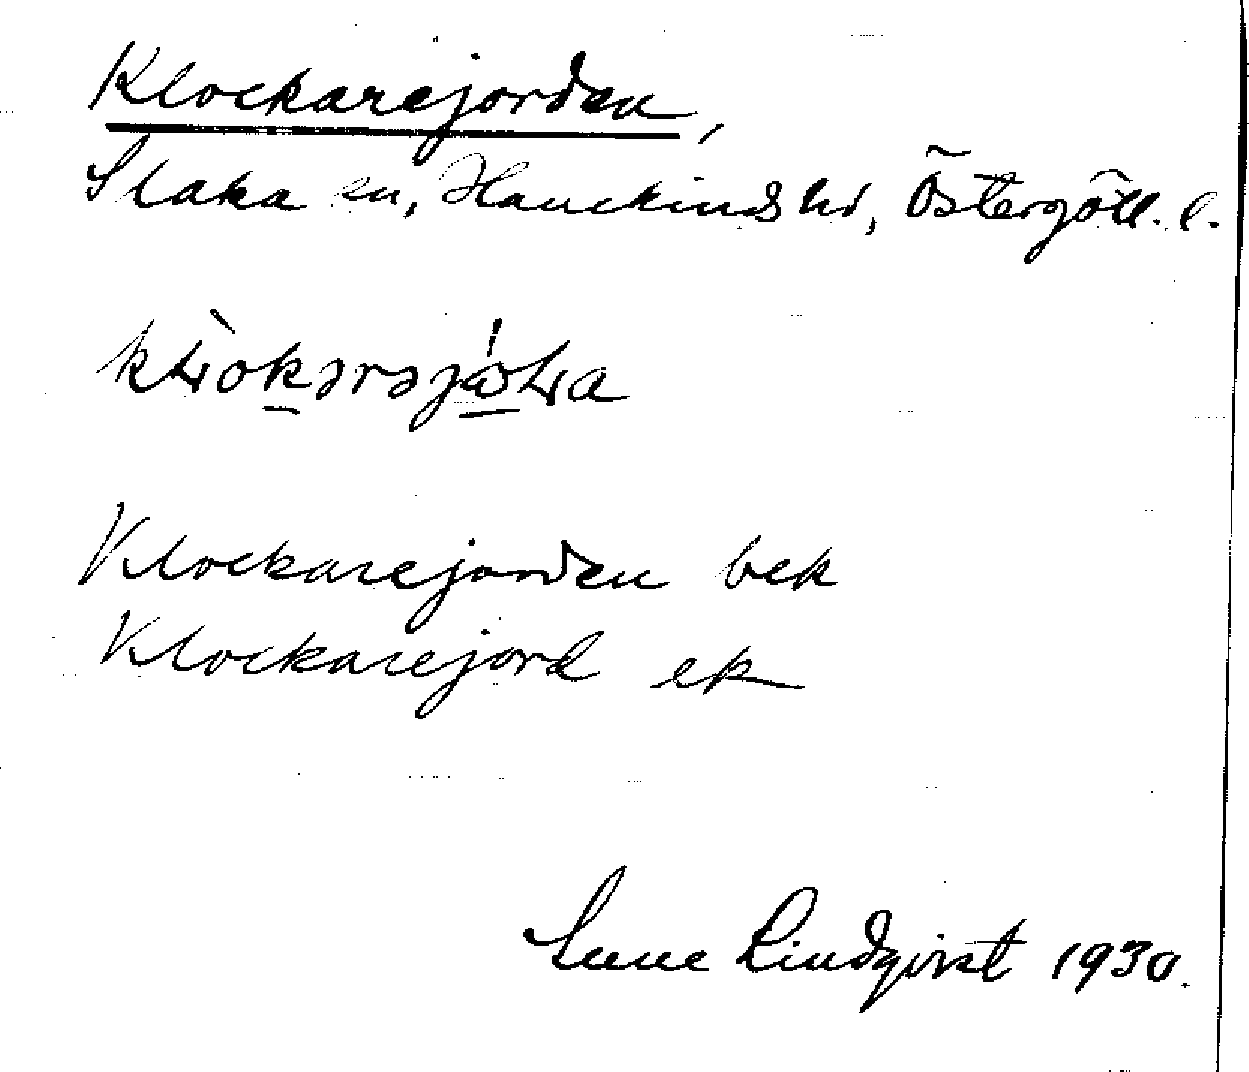 Klockarejorden,
Slaka sn, Hanekinds hd, Östergötl. l.
Klockarejorden bek
Klockarejord ek
Sune Lindqvist 1930.